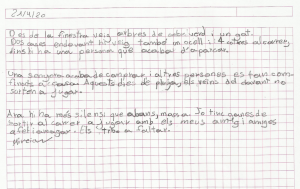 21/4/20
Des de la finestra veig arbres de color verd i un gat.
Dos cases endavant hi veig també un ocell i 4 cotxes al carrer,
fins hi ha una persona que acaba d'aparcar.
Una senyora acaba de comprar i altres persones es fan
a casa. Aquests dies de pluja, els nens del davant no
surten a jugar.
Ara hi ha més silenci que abans, massa. Jo tinc ganes de
sortir al carrer a jugar amb els meus amics i amigues
Els trobo a faltar.